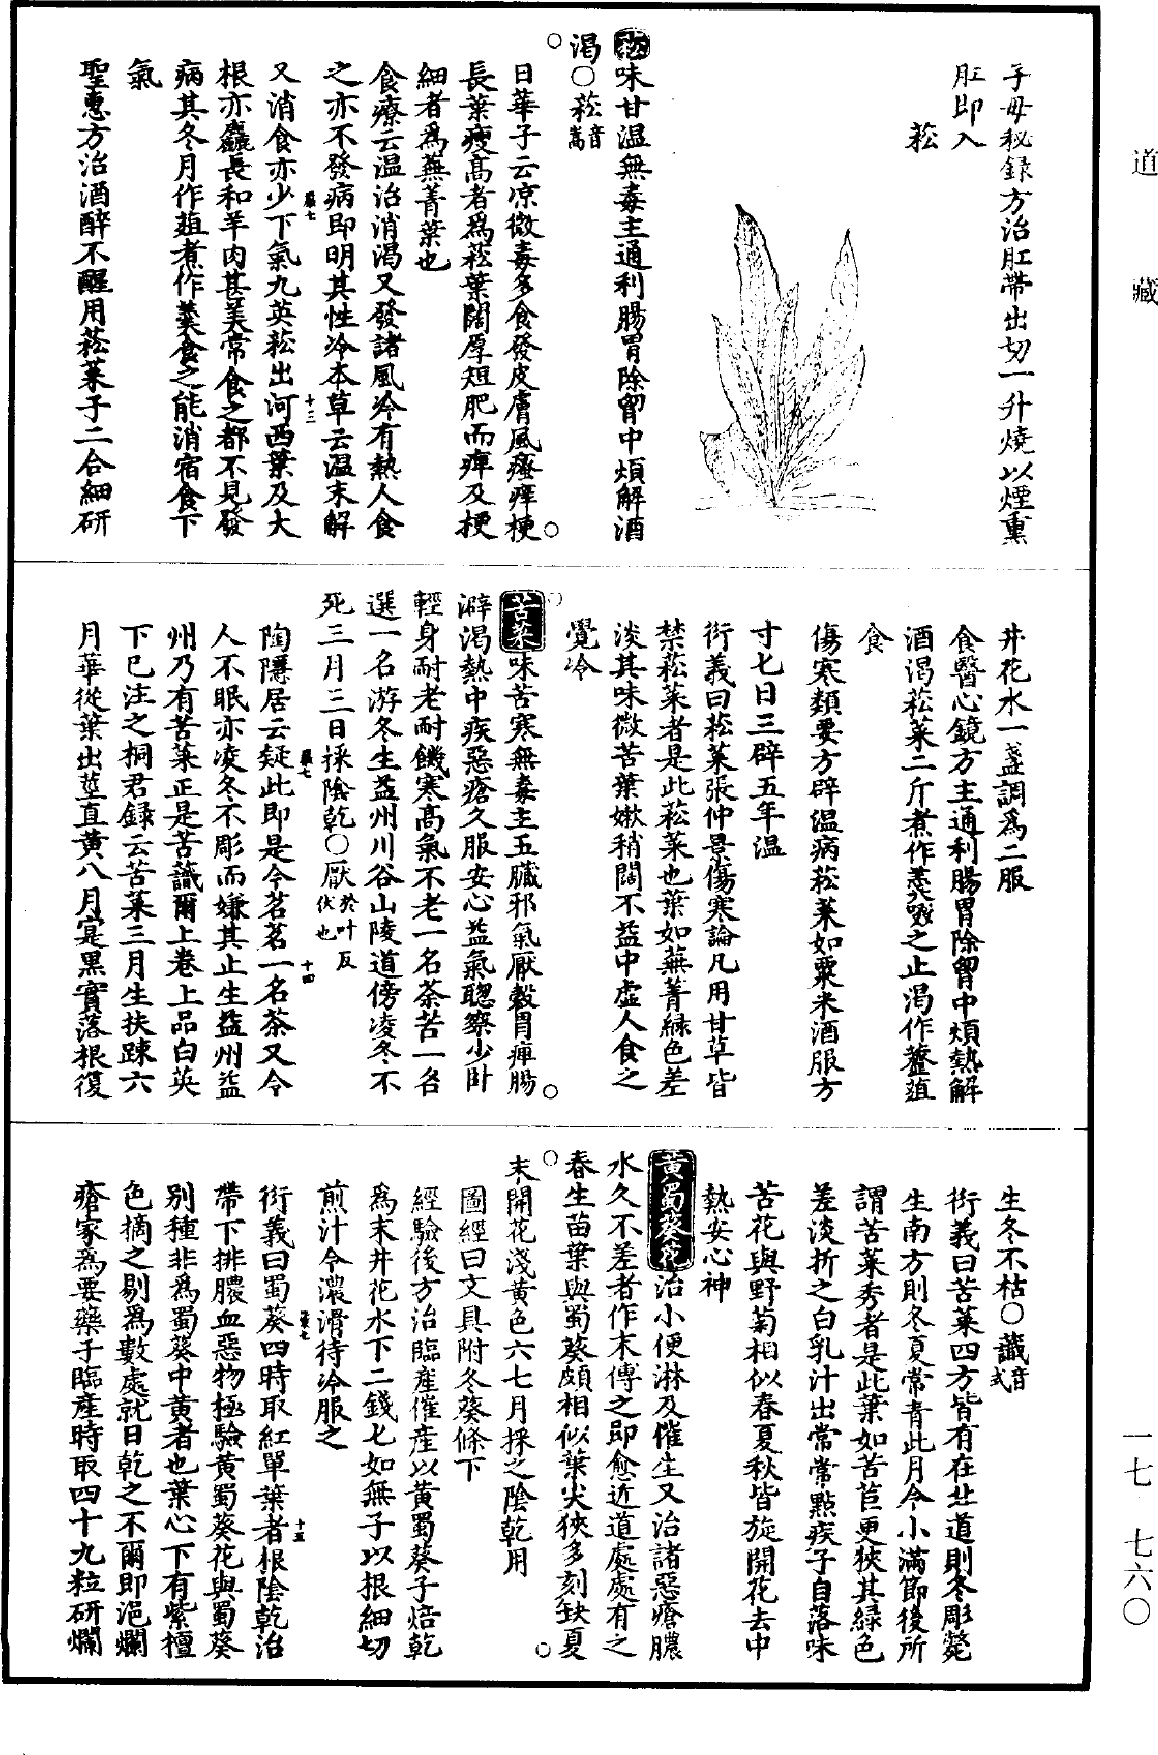 道藏
子母秘録方治肛帶出切一升燒以煙熏
肛即入
菘
菘味甘温無毒主通利腸胃除胷中煩解酒
渴○菘音嵩
日華子云凉微毒多食發皮膚風瘙痒梗
長葉瘦高者爲菘葉闊厚短肥而痺及梗
細者爲蕪菁葉也
食療云温治消渴又發諸風冷有熱人食
之亦不發病即明其性冷本草云温末解
又消食亦少下氣九英菘出河西葉及大
根亦麤長和羊肉甚美常食之都不見發
病其冬月作葅煮作羹食之能消宿食下
氣
聖惠方治酒醉不醒用菘菜子二合細研
井花水一盞調爲二服
食醫心鏡方主通利腸胃除胷中煩熱解
酒渴菘菜二斤煮作羹啜之止渴作虀葅
食
傷寒類要方辟温病菘菜如粟米酒服方
寸七日三辟五年温
衍義曰菘菜張仲景傷寒論凡用甘草皆
禁菘菜者是此菘菜也葉如蕪菁緑色差
淡其味微苦葉嫩稍闊不益中虚人食之
覺冷
苦菜味苦寒無毒主五臟邪氣厭穀胃痺腸
澼渴熱中疾惡瘡久服安心益氣聰察少卧
輕身耐老耐饑寒高氣不老一名荼苦一名
選一名游冬生益州川谷山陵道傍凌冬不
死三月三日採陰乾○厭於叶反伏也
陶隱居云疑此即是今茗茗一名茶又令
人不眠亦凌冬不彫而嫌其止生益州益
州乃有苦菜正是苦蘵爾上卷上品白英
下已注之桐君録云苦菜三月生扶踈六
月華從葉出莖直黄八月實黑實落根復
生冬不枯○蘵音式
衍義曰苦菜四方皆有在北道則冬彫斃
生南方則冬夏常青此月令小滿節後所
謂苦菜秀者是此葉如苦苣更狹其緑色
差淡折之白乳汁出常常點疾子自落味
苦花與野菊相似春夏秋皆旋開花去中
熱安心神
黄蜀葵花治小便淋及催生又治諸惡瘡膿
水久不差者作末傅之即愈近道處處有之
春生苗葉與蜀葵頗相似葉尖狹多刻缺夏
末開花淺黄色六七月採之陰乾用
圖經曰文具附冬葵條下
經驗後方治臨産催産以黄蜀葵子焙乾
爲末井花水下二錢七如無子以根細切
煎汁令濃滑待冷服之
衍義曰蜀葵四時取紅單葉者根陰乾治
帶下排膿血惡物極驗黄蜀葵花與蜀葵
别種非爲蜀葵中黄者也葉心下有紫檀
色摘之剔爲數處就日乾之不爾即浥爛
瘡家爲要藥子臨産時取四十九粒研爛
一七 七六○